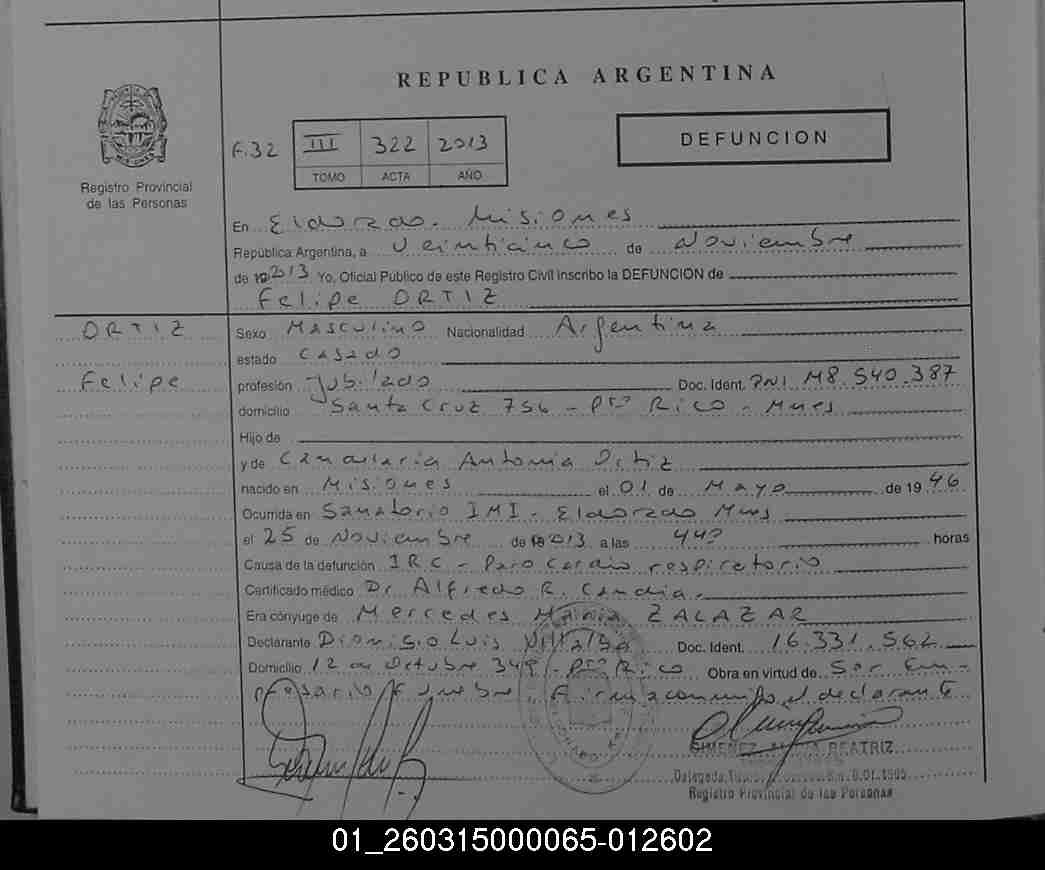 REPUBLICA ARGENTINA
Registro Provincial
de las Personas
F.32 III 322 2013
TOMO ACTA AÑO
DEFUNCION
En Eldorado. Misiones
República Argentina, a Veinticinco de Noviembre
de 2013 Yo, Oficial Público de este Registro Civil inscribo la DEFUNCION de
Felipe ORTIZ
ORTIZ
Felipe
Sexo Masculino Nacionalidad Argentina
estado Casado
profesión Jubilado Doc. Ident. DNI M8.540.387
domicilio Santa Cruz 756 - Pto Rico - Mnes
Hijo de
y de Candelaria Antonia Ortiz
nacido en Misiones el 01 de Mayo de 1946
Ocurrida en Sanatorio IMI - Eldorado Mnes
el 25 de Noviembre de 2013 a las 440 horas
Causa de la defunción IRC - Paro Cardio respiratorio
Certificado médico Dr. Alfredo R. Candia.
Era cónyuge de Mercedes María ZALAZAR
Declarante Dionisio Luis Villalba Doc. Ident. 16.331.562
Domicilio 12 de Octubre 349 - Pto Rico Obra en virtud de Ser Em-
presario Fúnebre Firma conmigo el declarante
GIMENEZ BEATRIZ
Delegada
Registro Provincial de las Personas
01_260315000065-012602